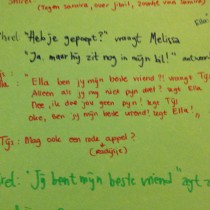 (Tegen Samira, over Jibil,
hrel: "Heb je gepoept?" vraagt Melissa
"Ja, maar hij zit nog in mijn bil!" antwoor
: "Ella ben jij mijn beste vriend?! vraagt Tijs
Alleen als jij mij niet pijn doet? zegt Ella
Nee, ik doe jou geen pijn! zegt Tijs
Oke, ben jij mijn beste vriend! zegt Ella!
Tijs: Mag ook een rode appel?
(= radijsje)
rel: "Jij bent mijn beste vriend" zegt